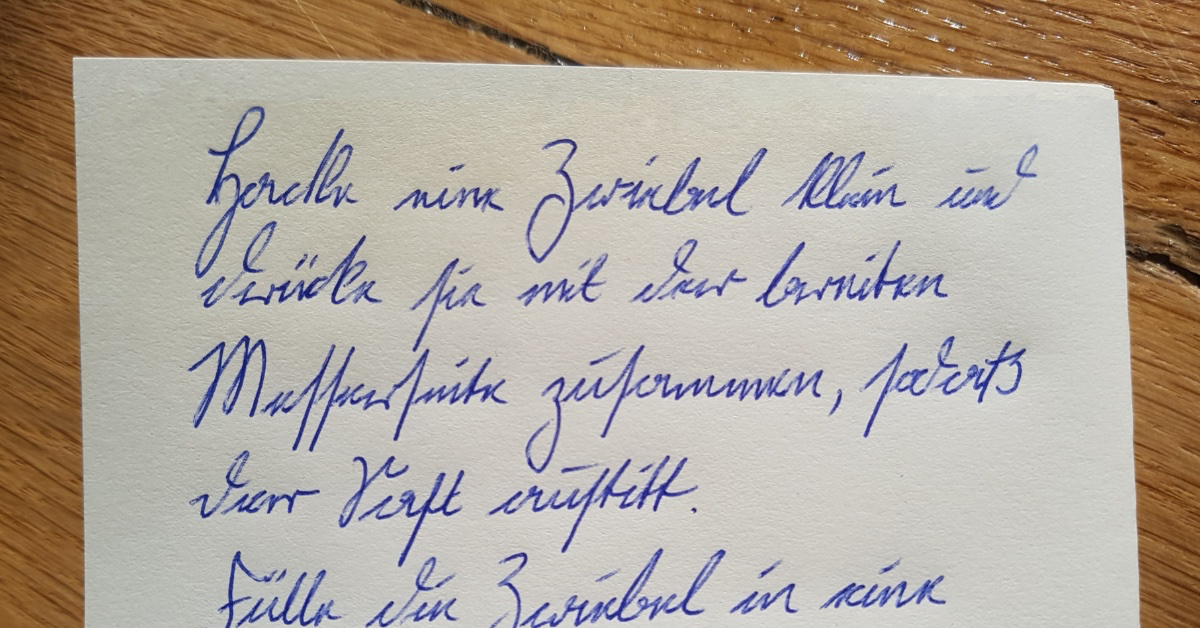 Hacke eine Zwiebel klein und
drücke sie mit der breiten
Messerseite zusammen, sodaß
der Saft austitt.
Fülle die Zwiebel in eine